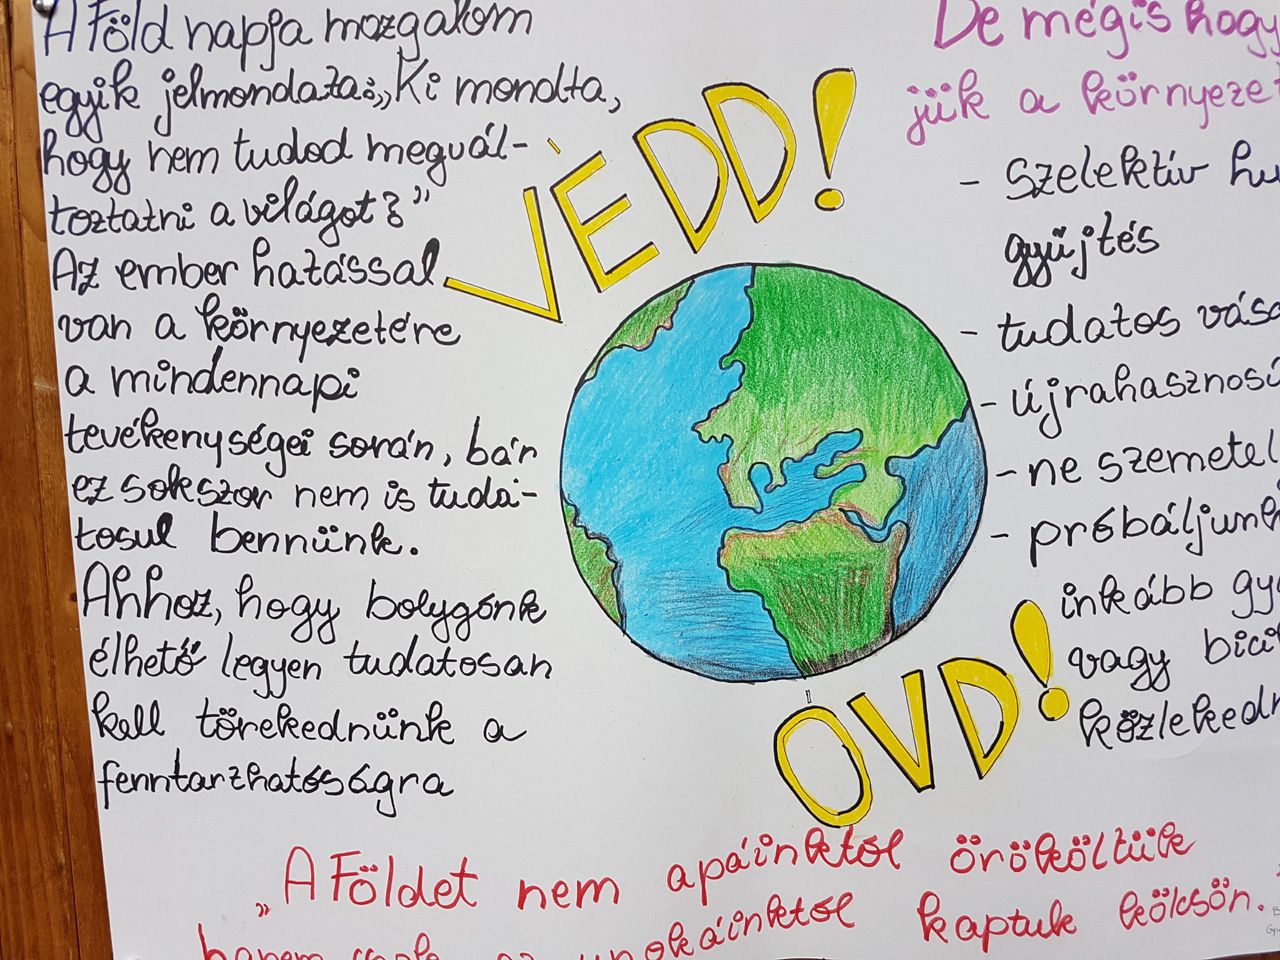 A Föld napja mozgalom
egyik jelmondata: „Ki mondta,
hogy nem tudod megvál-
toztatni a világot?”
Az ember hatással
van a környezetére
a mindennapi
tevékenységei során, bár
ez sokszor nem is tuda-
tosul bennünk.
Ahhoz, hogy bolygónk
élhető legyen tudatosan
kell törekednünk a
fenntarzhatóságra
VÉDD!
ÓVD!
De mégis hogy
jük a környezet
- Szelektív hu
gyűjtés
- tudatos vásá
- újrahasznosí
- ne szemetel
- próbáljunk
inkább gya
vagy bicik
közlekedn
„A Földet nem apáinktól örököltük
hanem csak az unokáinktól kaptuk kölcsön.”